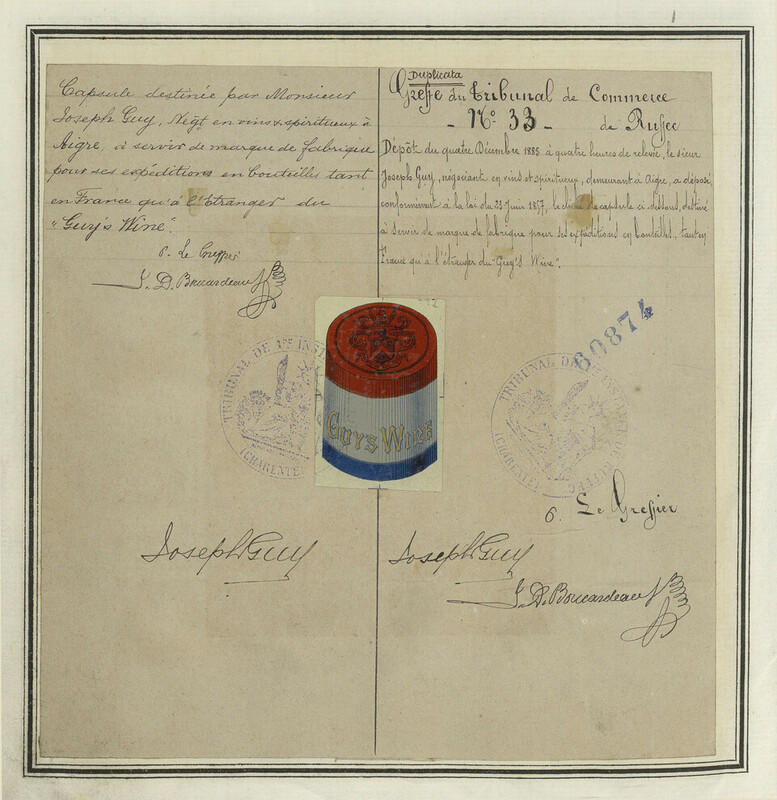 Capsule destinée par Monsieur
Joseph Guy, Négt en vins & spiritueux à
Aigre, à servir de marque de fabrique
pour ses expéditions en bouteilles tant
en France qu'à l'Etranger du
"Guy's Wine".
Le Greffier
J. D. Boucardeau
Joseph Guy
Duplicata
Greffe du Tribunal de Commerce
- No 33 - de Ruffec
Dépôt du quatre Décembre 1885 à quatre heures de relevée, le sieur
Joseph Guy, négociant en vins et spiritueux, demeurant à Aigre, a déposé
conformément à la loi du 23 Juin 1857, le de capsule ci-dessous, destiné
à servir de marque de fabrique pour ses expéditions en bouteilles, tant en
France qu'à l'étranger du "Guy's Wine".
GUYS WINE
TRIBUNAL DE 1RE INST
(CHARENTE)
60874
TRIBUNAL DE INSTANCE DE RUFFEC
(CHARENTE)
Le Greffier
Joseph Guy
J. D. Boucardeau